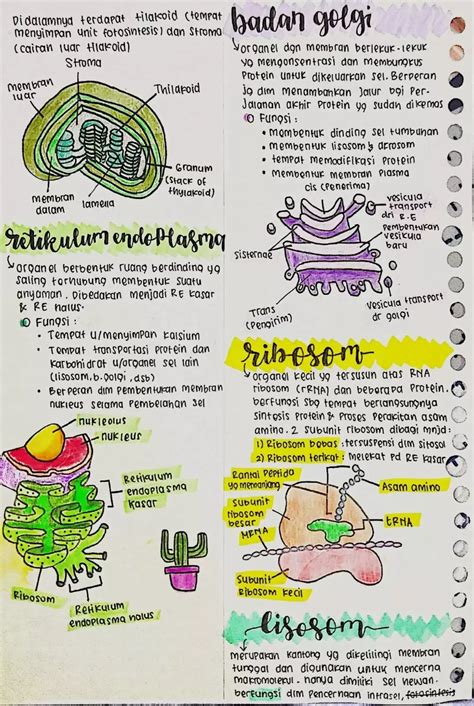 Didalamnya terdapat tilakoid (tempat
menyimpan unit fotosintesis) dan Stroma
(cairan luar tilakoid)
Stroma
Membran
luar
Thilakoid
Granum
(Stack of
thylakoid)
membran
dalam
lamella
retikulum endoplasma
organel berbentuk ruang berdinding yg
saling terhubung membentuk suatu
anyaman. Dibedakan menjadi RE kasar
& RE halus.
Fungsi :
• Tempat u/menyimpan kalsium
• Tempat transportasi protein dan
karbohidrat u/organel sel lain
(lisosom, b.golgi, dsb)
• Berperan dlm Pembentukan membran
nukleus selama Pembelahan sel
nukleolus
nukleus
Retikulum
endoplasma
kasar
Ribosom
Retikulum
endoplasma halus
badan golgi
organel dgn membran berlekuk-lekuk
yg mengonsentrasi dan membungkus
Protein untuk dikeluarkan sel. Berperan
jg dlm menambahkan jalur bgi Per-
Jalanan akhir Protein yg sudah dikemas
Fungsi :
• membentuk dinding sel tumbuhan
• membentuk lisosom & akrosom
• tempat memodifikasi Protein
• membentuk membran Plasma
cis (Penerima)
vesicula
transport
dri R.E
Pembentukan
vesikula
baru
Sisternae
Trans
(Pengirim)
vesicula transport
dr golgi
ribosom
organel kecil yg tersusun atas RNA
ribosom (rRNA) dan beberapa Protein.
berfungsi sbg tempat berlangsungnya
sintesis Protein & Proses Perakitan asam
amino. 2 Subunit ribosom dibagi mnjd :
1) Ribosom bebas : tersuspensi dlm sitosol
2) Ribosom terikat : melekat pd RE kasar
Rantai Peptida
yg memanjang
Asam amino
Subunit
ribosom
besar
tRNA
MRNA
Subunit
Ribosom kecil
lisosom
merupakan kantong yg dikelilingi membran
tunggal dan digunakan untuk mencerna
makromolekul. hanya dimiliki sel hewan.
berfungsi dlm Pencernaan intrasel, fotosintesis